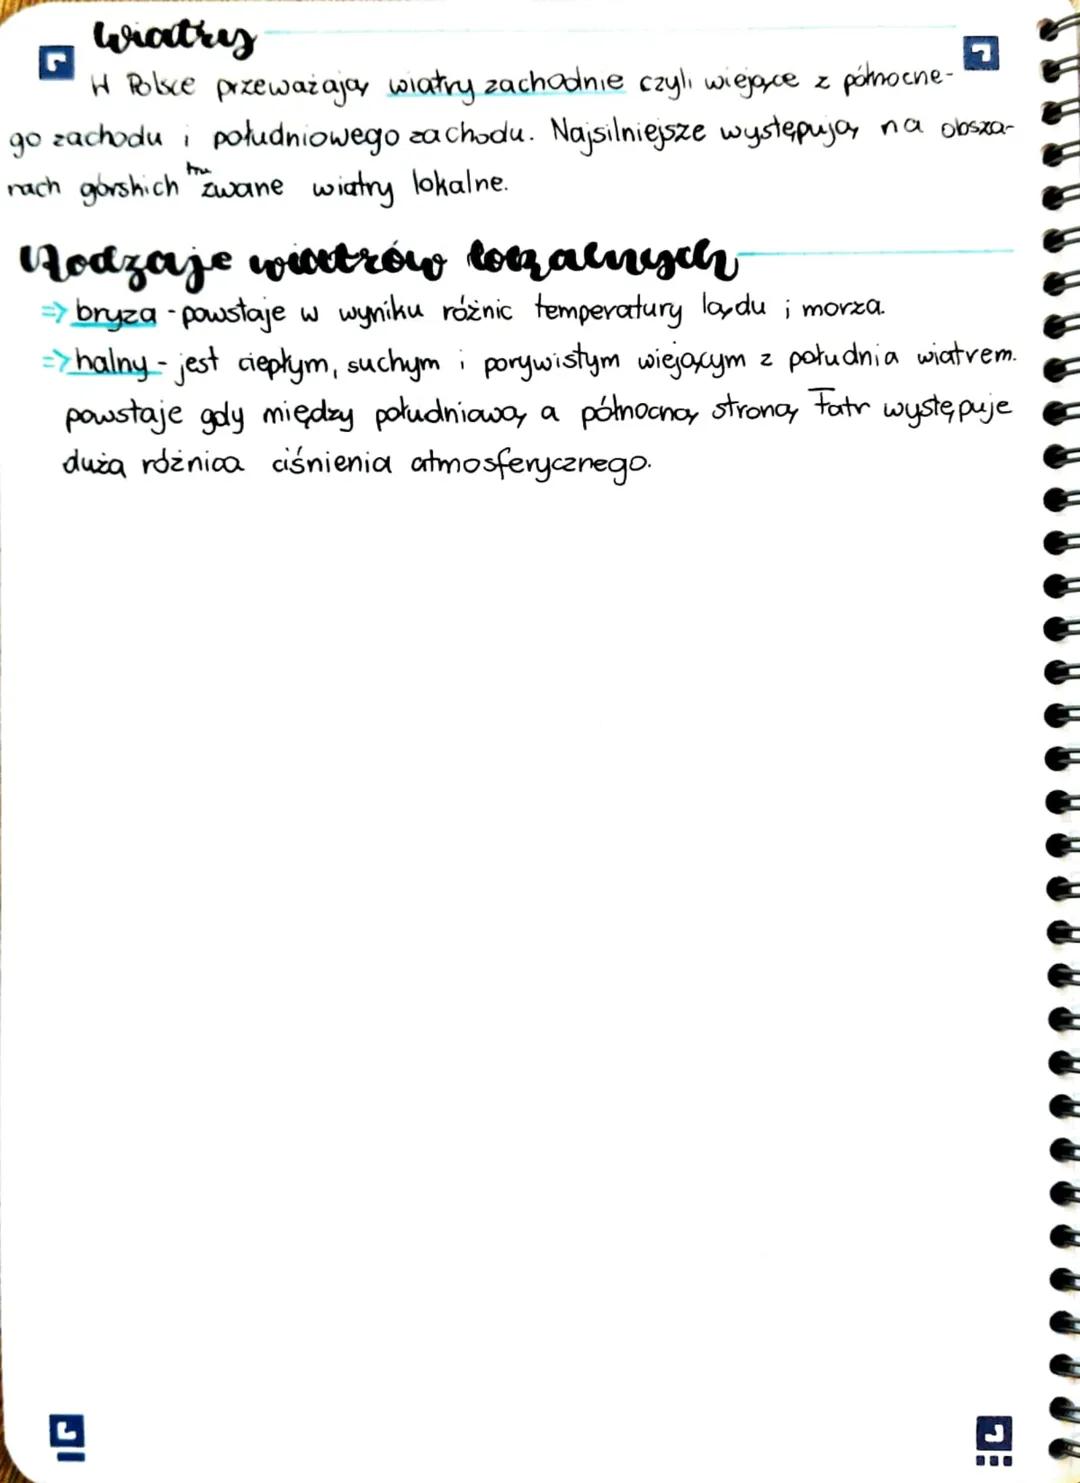 Wiatry
W Polsce przeważają wiatry zachodnie czyli wiejące z północne-
go zachodu i południowego zachodu. Najsilniejsze występują na obsza-
rach górskich tzw zwane wiatry lokalne.
Rodzaje wiatrów lokalnych
=> bryza - powstaje w wyniku różnic temperatury lądu i morza.
=> halny - jest ciepłym, suchym i porywistym wiejącym z południa wiatrem.
powstaje gdy między południową a północną stroną Tatr występuje
duża różnica ciśnienia atmosferycznego.